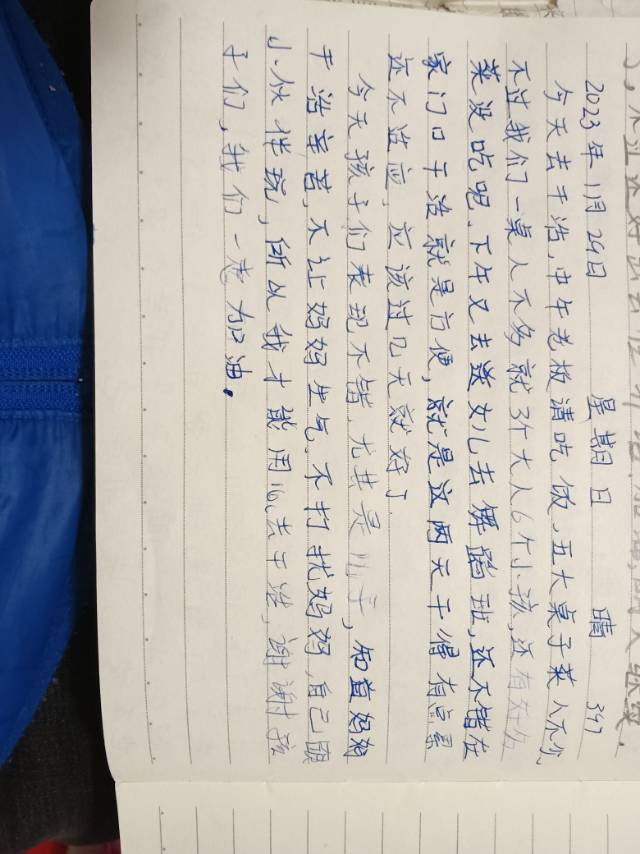 2023年1月29日 星期日 晴 347
今天去干浩,中午老板清吃饭,五大桌子菜人不少,
不过我们一桌人不多就3个大人6个小孩,还有好多
菜没吃吧,下午又去送女儿去舞蹈班,还不错在
家门口干浩就是方便,就是这两天干得有点累
还不适应,应该过几天就好了
今天孩子们表现不错,尤其是儿子,知道妈妈
干浩辛苦,不让妈妈生气,不打扰妈妈,自己跟
小伙伴玩,所以我才能用心去干浩,谢谢孩
子们,我们一起加油。